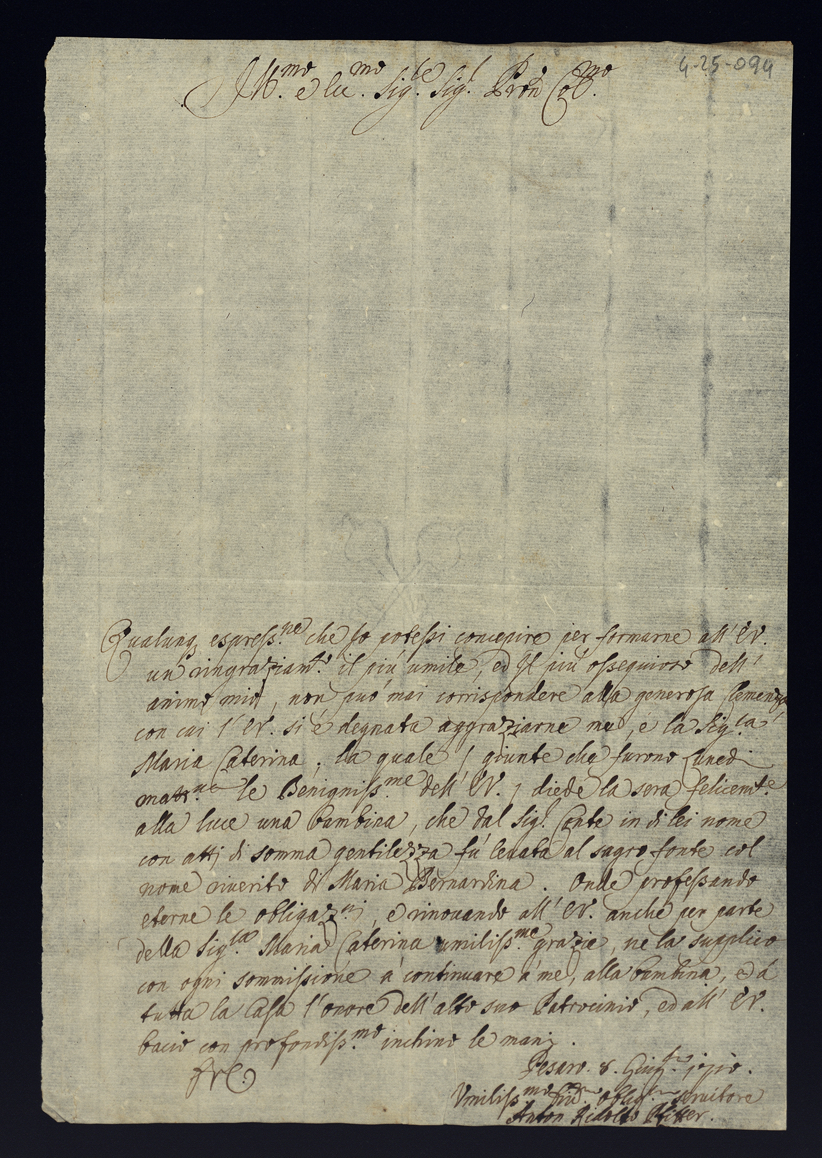 4-25-094
Ill.mo e Ecc.mo Sig.re Sig.r Pron Col.mo
Qualunq. espress.ne che Io potessi concepire per formarne all'EV.
un ringraziam.to il più umile, ed il più ossequioso dell'
animo mio, non può mai corrispondere alla generosa Clemenza
con cui l'EV. si è degnata aggraziarne me, e la Sig.ra
Maria Caterina, la quale / giunte che furono Lunedì
matt.na le Benigniss.me dell'EV. / diede la sera felicem.te
alla luce una bambina, che dal Sig.r Conte in di lei nome
con atti di somma gentilezza fù levata al sagro fonte col
nome riverito di Maria Bernardina. Onde professando
eterne le obligaz.ni, e rinovando all'EV. anche per parte
della Sig.ra Maria Caterina umiliss.me grazie, ne la supplico
con ogni sommissione à continuare à me, alla bambina, ed à
tutta la Casa l'onore dell'alto suo Patrocinio, ed all'EV.
bacio con profondiss.mo inchino le mani.
Pesaro 8. Giug.o 1710.
Umiliss.mo oblig.mo servitore
Anton